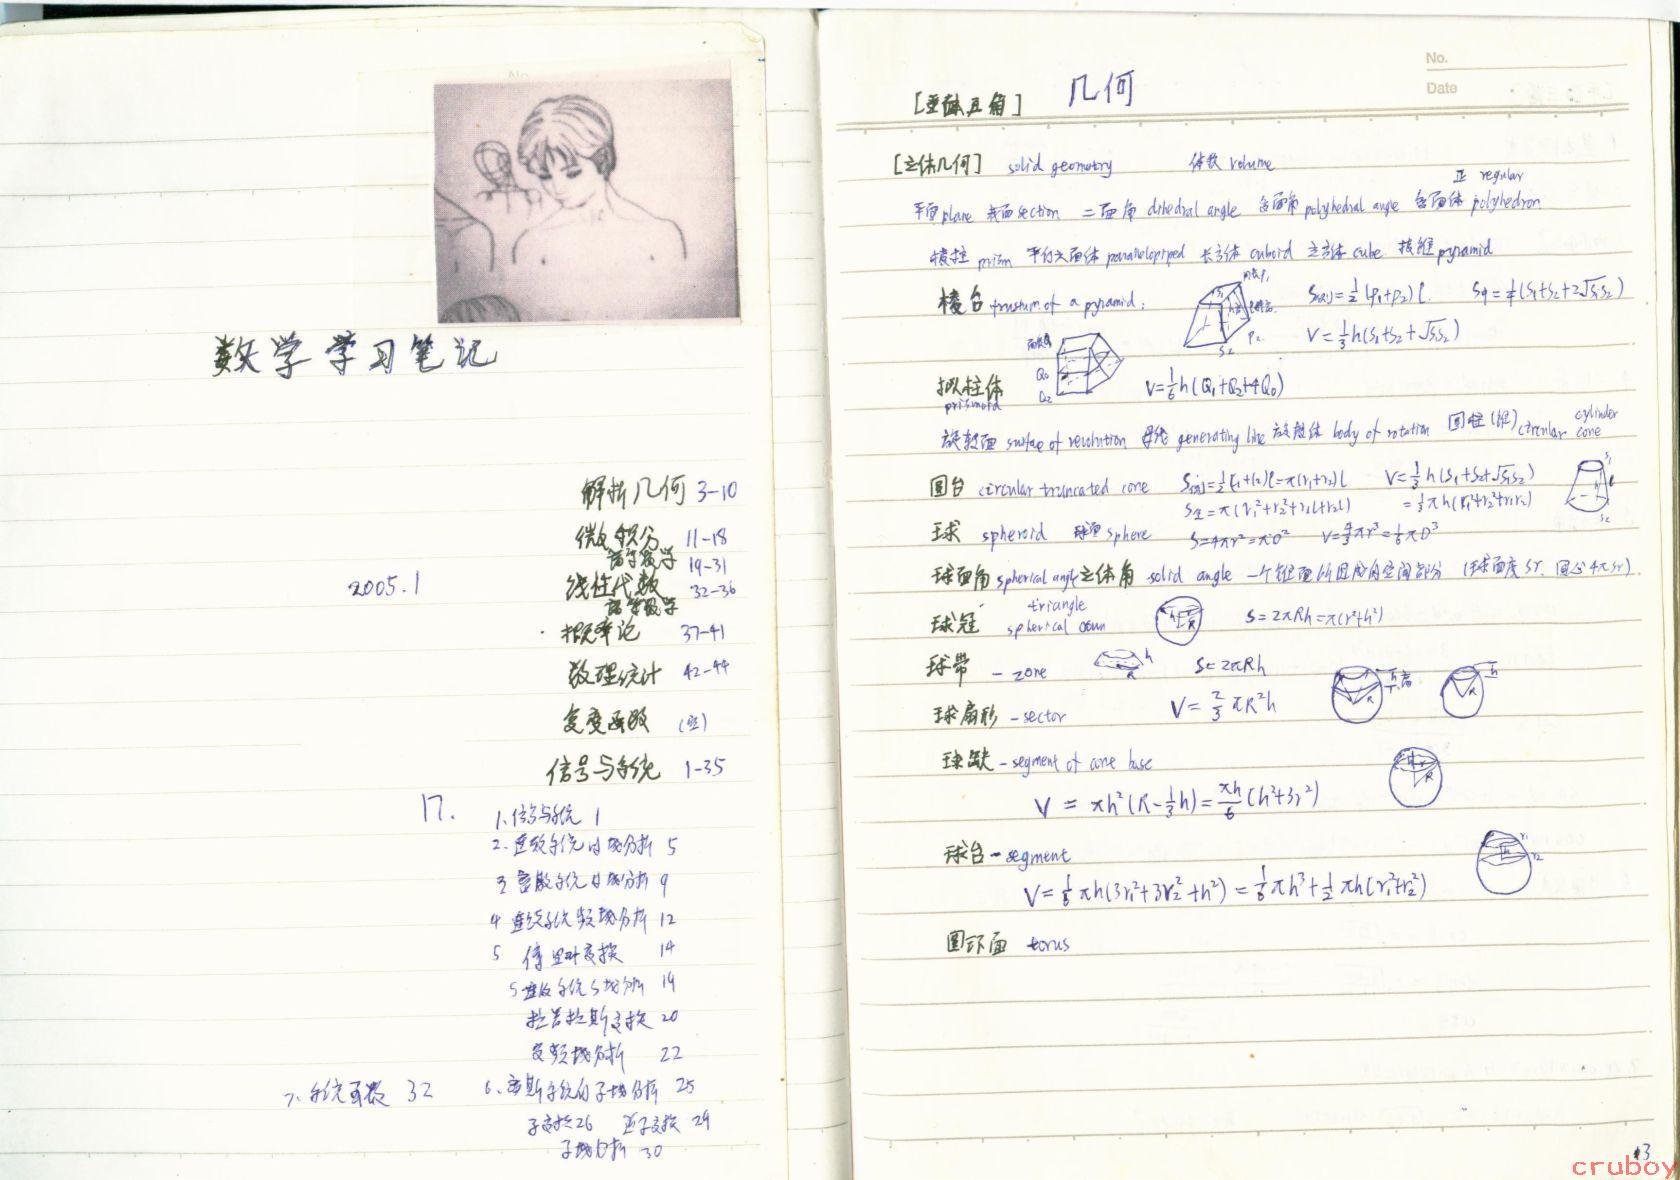 数学学习笔记
解析几何 3-10
微积分 11-18
高等数学 19-31
2005.1
线性代数 32-36
高等数学
概率论 37-41
数理统计 42-44
复变函数
信号与系统 1-35
17.
1、信号与系统 1
2、连续系统时域分析 5
3 离散系统时域分析 9
4 连续系统频域分析 12
5 傅里叶变换 14
5 连续系统S域分析 19
拉普拉斯变换 20
复频域分析 22
7、系统函数 32
6、离散系统的Z域分析 25
Z变换 26 逆Z变换 29
Z域分析 30
No.
Date
几何
[立体几何] solid geometry 体积 volume
正 regular
平面 plane 截面 section 二面角 dihedral angle 多面角 polyhedral angle 多面体 polyhedron
棱柱 prism 平行六面体 长方体 cuboid 立方体 cube 棱锥 pyramid
棱台 frustum of a pyramid: S侧=½(p₁+p₂)l.
V=⅓h(S₁+S₂+√S₁S₂)
p₂
S₂
拟柱体 Q₀ Q₂ V=⅙h(Q₁+Q₂+4Q₀)
prismoid
旋转面 surface of revolution 母线 generating line 旋转体 body of rotation 圆柱(锥) circular cylinder cone
圆台 circular truncated cone =π(r₁+r₂)l V=⅓h(S₁+S₂+√S₁S₂)
S全=π(r₁²+r₂²+r₁l+r₂l) =⅓πh(r₁²+r₂²+r₁r₂)
球 spheroid 球面 sphere S=4πr²=πD² V=4/3πr³=⅙πD³
球面角 spherical angle 立体角 solid angle 一个锥面所围成的空间部分 (球面度 sr.
triangle
球冠 spherical S=2πRh=π(r²+h²)
球带 - zone h R S=2πRh
球扇形 - sector V=⅔πR²h
球缺 - segment of one base
V = πh²(R-⅓h)=πh/6(h²+3r²)
球台 - segment
V=⅙πh(3r₁²+3r₂²+h²)=⅙πh³+½πh(r₁²+r₂²)
圆环面 torus
3
cruboy